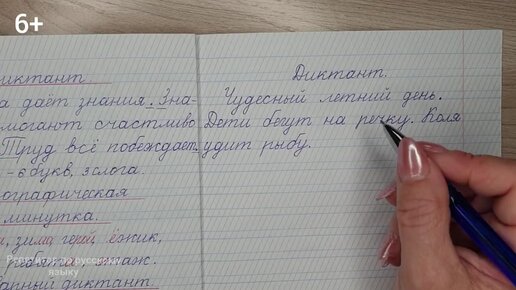 6+
диктант
а даёт знания. Зна-
могают счастливо
Труд всё побеждает
- 6 букв, 3 слога.
ографическая
минутка.
зима, герой, ёжик,
ребята, этаж.
арный диктант.
Репетитор по русскому
языку
Диктант.
Чудесный летний день.
Дети бегут на речку. Коля
удит рыбу.